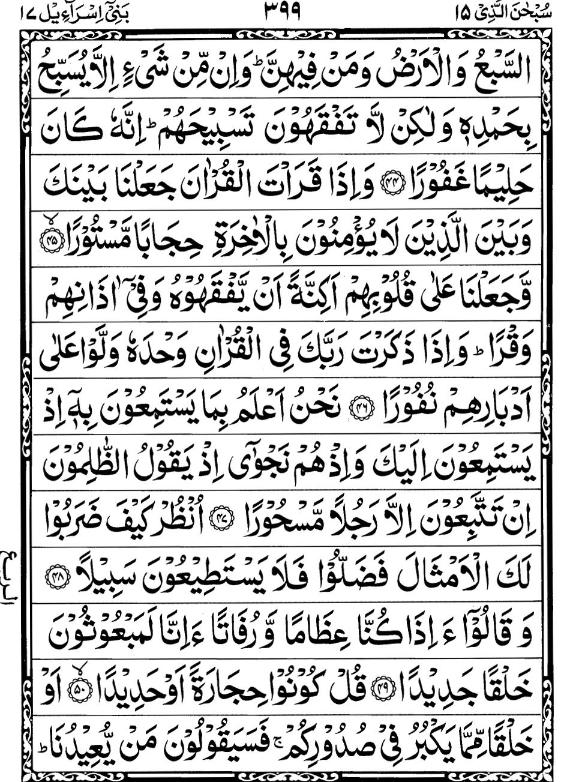 سُبْحٰنَ الَّذِیْۤ ۱۵
۳۹۹
بَنِیْۤ اِسْرَآءِیْل ۱۷
السَّبْعُ وَالْاَرْضُ وَمَنْ فِیْهِنَّ ؕ وَاِنْ مِّنْ شَیْءٍ اِلَّا یُسَبِّحُ
بِحَمْدِهٖ وَلٰكِنْ لَّا تَفْقَهُوْنَ تَسْبِیْحَهُمْ ؕ اِنَّهٗ كَانَ
حَلِیْمًا غَفُوْرًا ﴿۴۴﴾ وَاِذَا قَرَاْتَ الْقُرْاٰنَ جَعَلْنَا بَیْنَكَ
وَبَیْنَ الَّذِیْنَ لَا یُؤْمِنُوْنَ بِالْاٰخِرَةِ حِجَابًا مَّسْتُوْرًا ﴿ۙ۴۵﴾
وَّجَعَلْنَا عَلٰی قُلُوْبِهِمْ اَكِنَّةً اَنْ یَّفْقَهُوْهُ وَفِیْۤ اٰذَانِهِمْ
وَقْرًا ؕ وَاِذَا ذَكَرْتَ رَبَّكَ فِی الْقُرْاٰنِ وَحْدَهٗ وَلَّوْا عَلٰۤی
اَدْبَارِهِمْ نُفُوْرًا ﴿۴۶﴾ نَحْنُ اَعْلَمُ بِمَا یَسْتَمِعُوْنَ بِهٖۤ اِذْ
یَسْتَمِعُوْنَ اِلَیْكَ وَاِذْ هُمْ نَجْوٰۤی اِذْ یَقُوْلُ الظّٰلِمُوْنَ
اِنْ تَتَّبِعُوْنَ اِلَّا رَجُلًا مَّسْحُوْرًا ﴿۴۷﴾ اُنْظُرْ كَیْفَ ضَرَبُوْا
لَكَ الْاَمْثَالَ فَضَلُّوْا فَلَا یَسْتَطِیْعُوْنَ سَبِیْلًا ﴿۴۸﴾
وَقَالُوْۤا ءَاِذَا كُنَّا عِظَامًا وَّرُفَاتًا ءَاِنَّا لَمَبْعُوْثُوْنَ
خَلْقًا جَدِیْدًا ﴿۴۹﴾ قُلْ كُوْنُوْا حِجَارَةً اَوْ حَدِیْدًا ﴿ۙ۵۰﴾ اَوْ
خَلْقًا مِّمَّا یَكْبُرُ فِیْ صُدُوْرِكُمْ ۚ فَسَیَقُوْلُوْنَ مَنْ یُّعِیْدُنَا ؕ
الربع